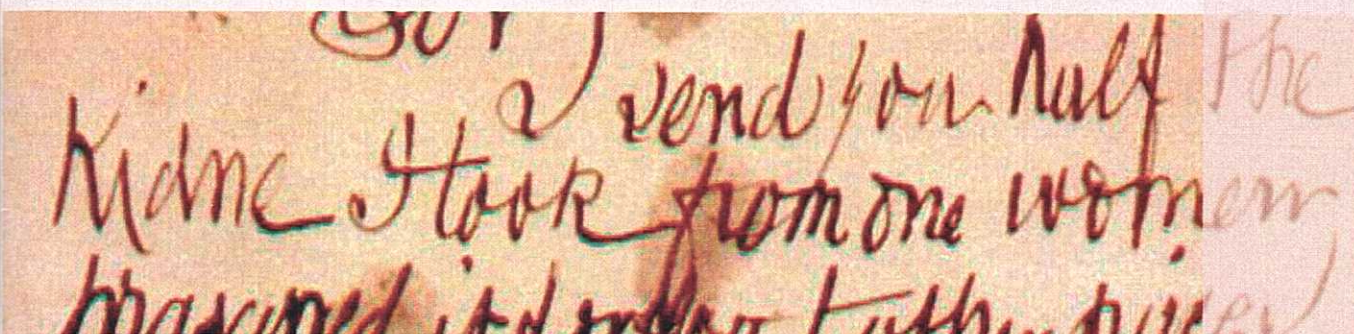 Sor
I send you half the
Kidne I took from one women
prasarved it for you tother piece